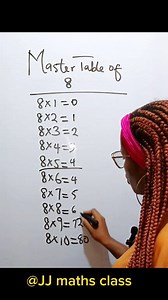 Master Table of
8
8×1=0
8×2=1
8×3=2
8×4=3
8×5=4
8×6=4
8×7=5
8×8=6
8×9=72
8×10=80
@JJ maths class